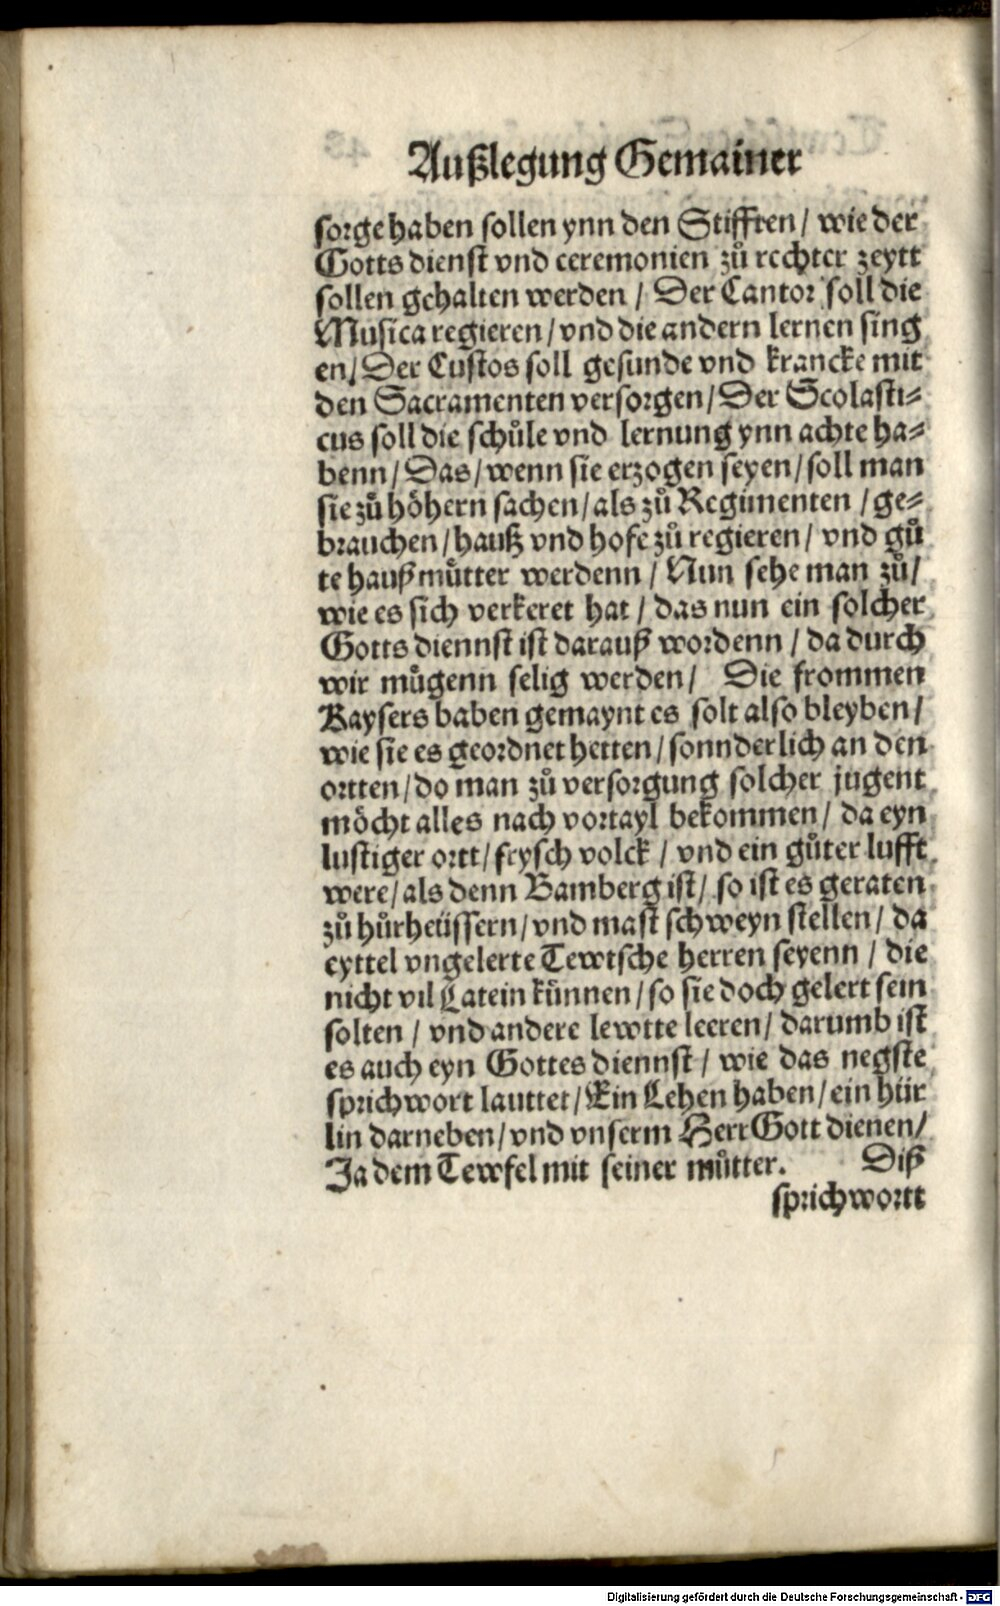 Außlegung Gemainer
sorge haben sollen ynn den Stifften / wie der
Gotts dienst vnd ceremonien zů rechter zeytt
sollen gehalten werden / Der Cantor soll die
Musica regieren / vnd die andern lernen sing
en / Der Custos soll gesunde vnd krancke mit
den Sacramenten versorgen / Der Scolasti⸗
cus soll die schůle vnd lernung ynn achte ha⸗
benn / Das / wenn sie erzogen seyen / soll man
sie zů höhern sachen / als zů Regimenten / ge⸗
brauchen / hauß vnd hofe zů regieren / vnd gů
te hauß můtter werdenn / Nun sehe man zů /
wie es sich verkeret hat / das nun ein solcher
Gotts diennst ist darauß wordenn / da durch
wir můgenn selig werden / Die frommen
Kaysers haben gemaynt es solt also bleyben /
wie sie es geordnet hetten / sonnderlich an den
ortten / do man zů versorgung solcher jugent
möcht alles nach vortayl bekommen / da eyn
lustiger ortt / frysch volck / vnd ein gůter lufft
were / als denn Bamberg ist / so ist es geraten
zů hůrheüssern / vnd mast schweyn stellen / da
eyttel vngelerte Tewtsche herren seyenn / die
nicht vil Latein künnen / so sie doch gelert sein
solten / vnd andere lewtte leeren / darumb ist
es auch eyn Gottes diennst / wie das negste
sprichwort lauttet / Ein Lehen haben / ein hür
lin darneben / vnd vnserm Herr Gott dienen /
Ja dem Tewfel mit seiner můtter. Diß
sprichwortt
Digitalisierung gefördert durch die Deutsche Forschungsgemeinschaft - DFG